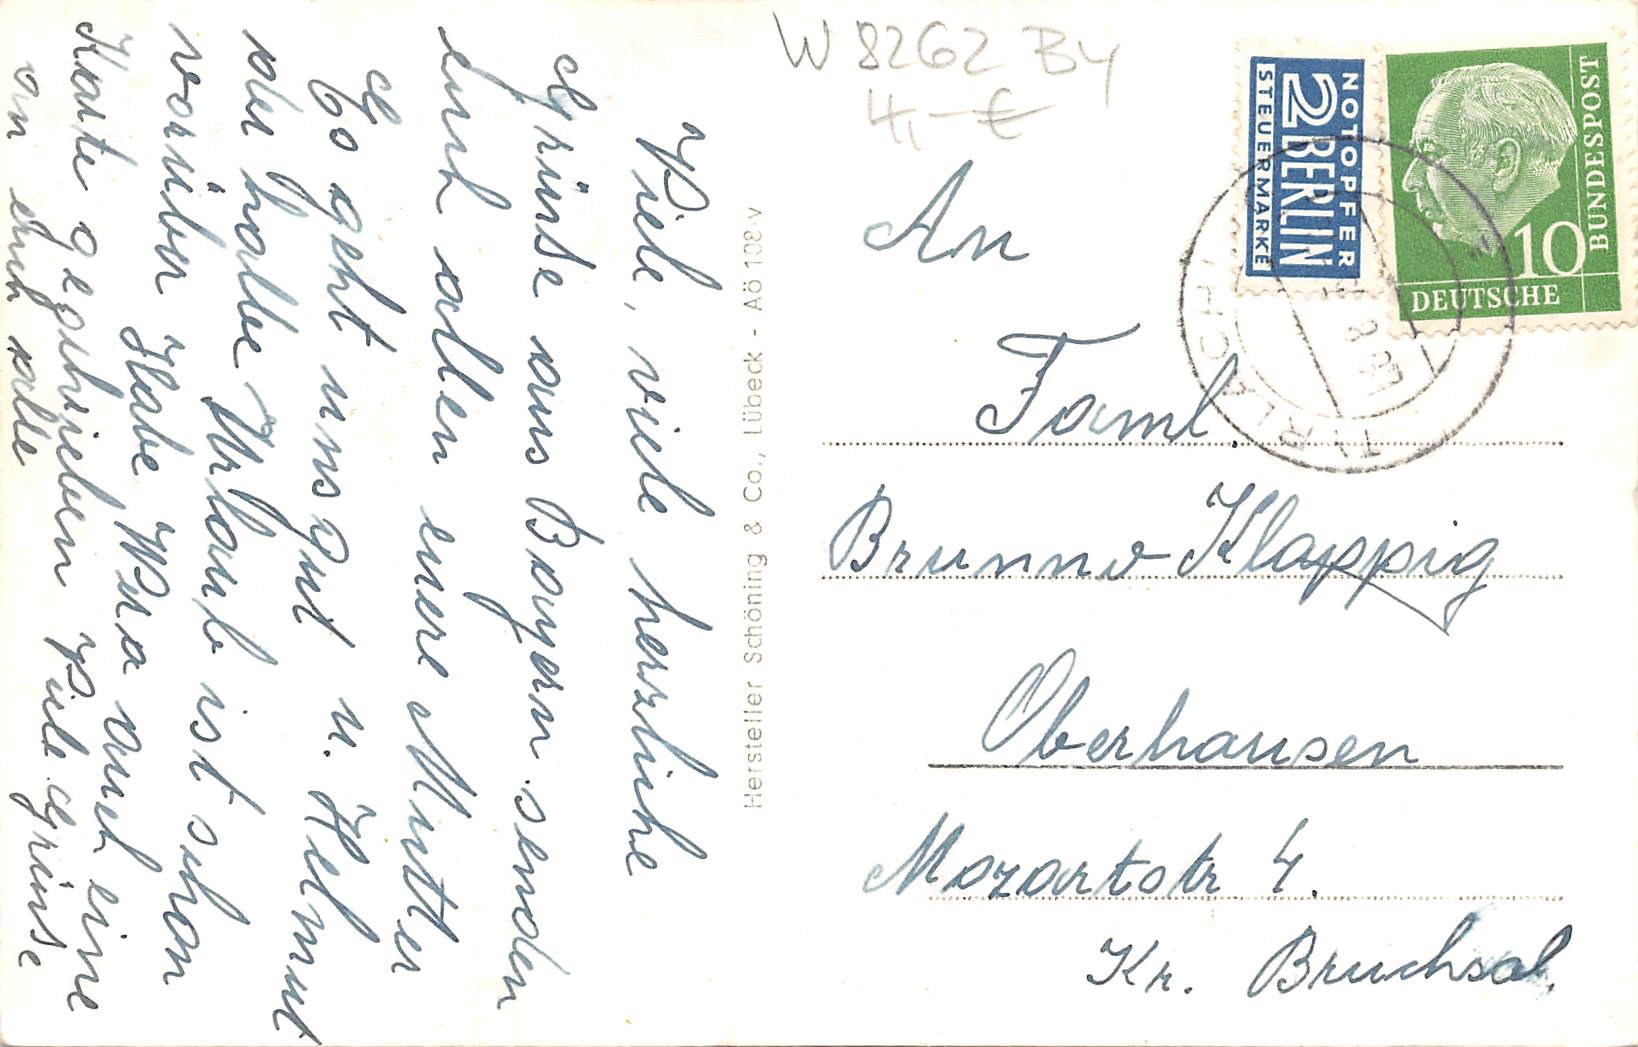 Viele, viele herzliche
Grüsse aus Bayern senden
euch allen eure Mutter
Es geht uns gut u. Helmut
der halbe Urlaub ist schon
vorüber Habe Wera auch eine
Karte geschrieben Viele Grüsse
an euch alle
Hersteller Schöning & Co., Lübeck - Aö 108 v
W 8262 By
4,- €
NOTOPFER
2 BERLIN
STEUERMARKE
BUNDESPOST
10
DEUTSCHE
An
Faml.
Brunno Klappig
Oberhausen
Mozartstr 4.
Kr. Bruchsal.